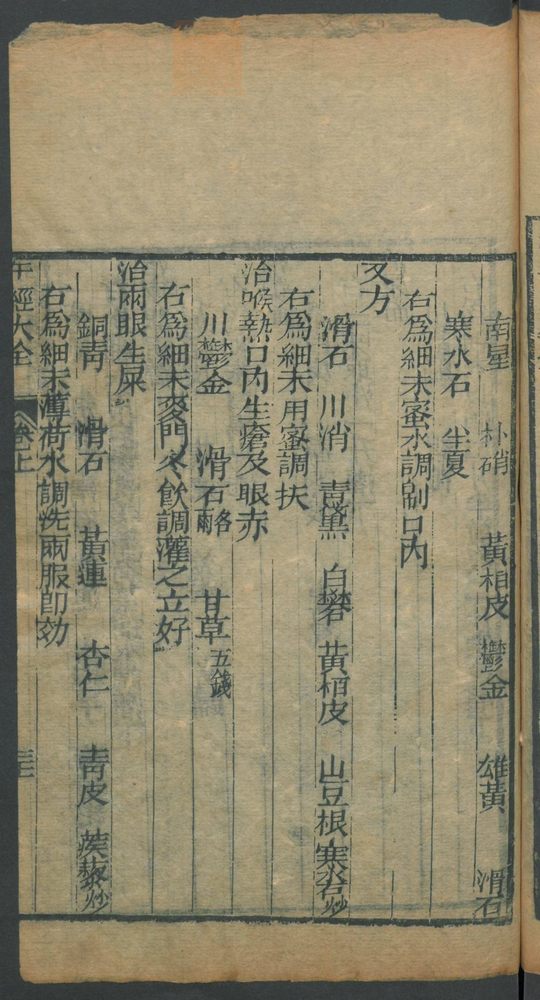 南星 朴硝 黃柏皮 鬱金 雄黃 滑石
寒水石 半夏
右爲細末蜜水調刷口內
又方
滑石 川消 青黛 白礬 黃栢皮 山豆根 寒水石炒
右爲細末用蜜調抹
治喉熱口內生瘡及眼赤
川鬱金 滑石各兩 甘草五錢
右爲細末麥門冬飲調灌之立好
治兩眼生屎
銅青 滑石 黃連 杏仁 青皮 蒺藜炒
右爲細末薄荷水調洗兩服卽効
牛經大全 卷上